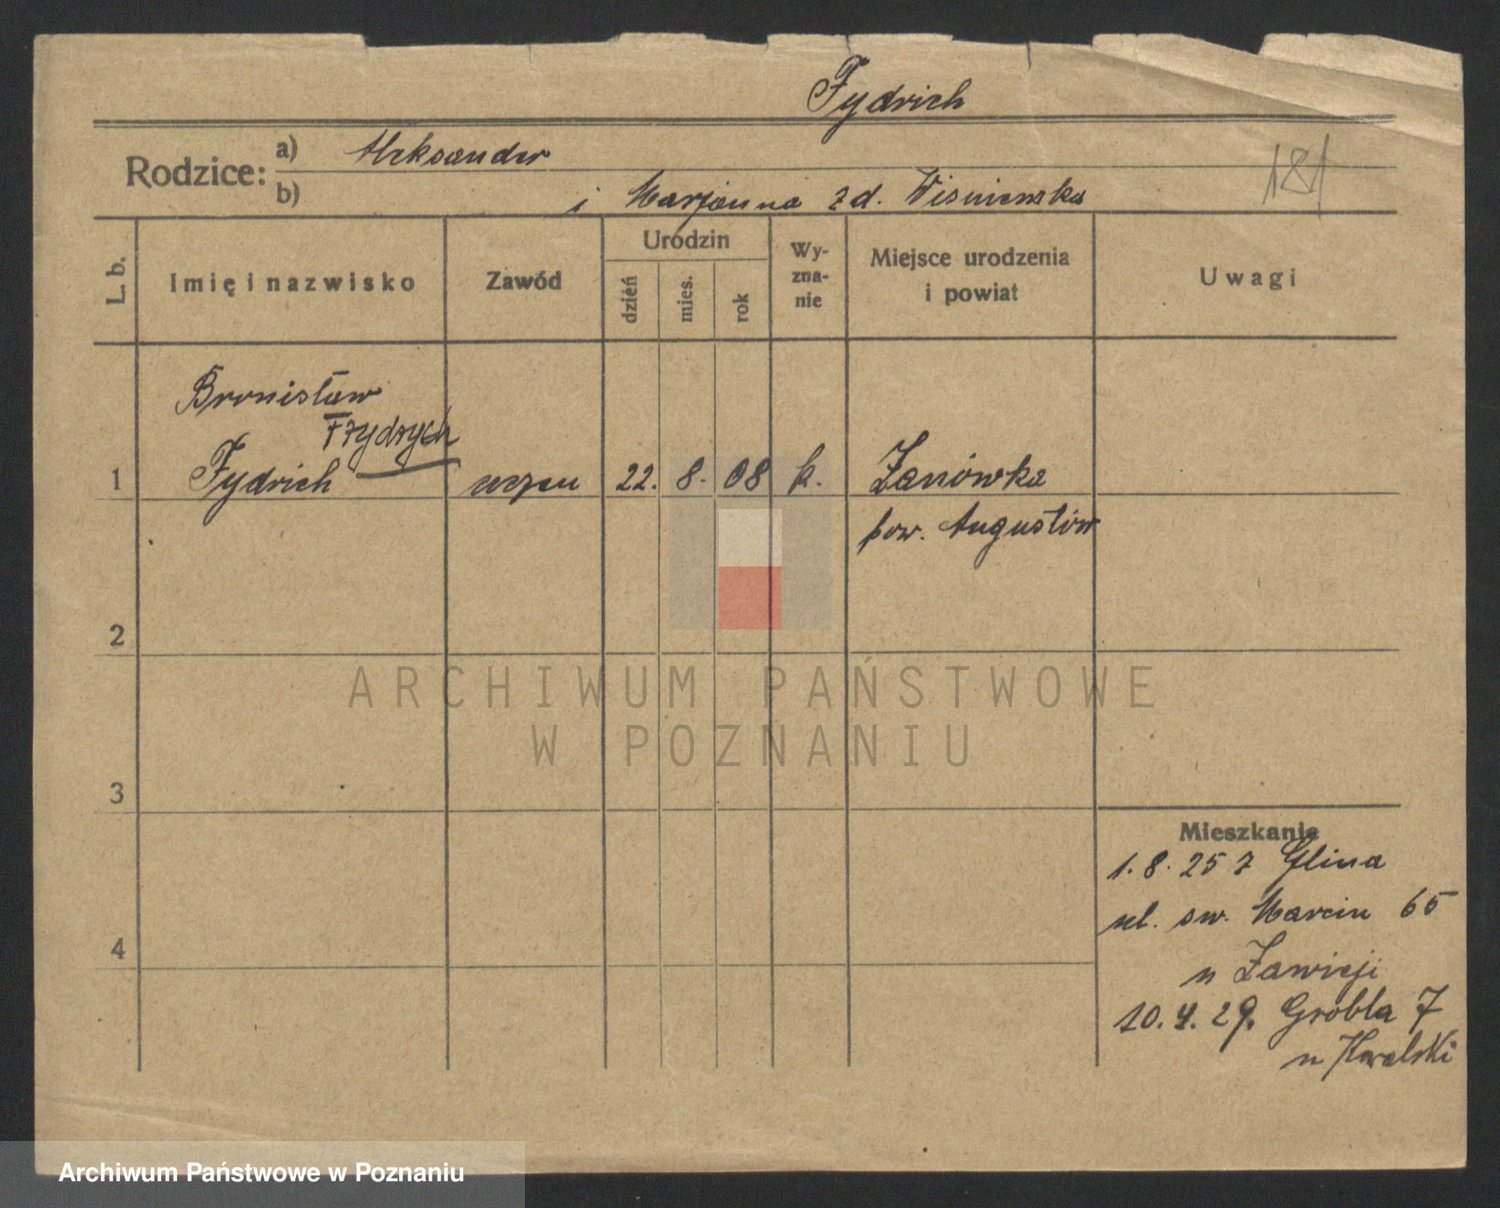 Fydrich
Rodzice: a) Aleksander
b) i Marjanna z d. Wiśniewska
181
L. b. Imię i nazwisko Zawód Urodzin dzień mies. rok Wy-zna-nie Miejsce urodzenia i powiat Uwagi
Bronisław
Frydrych
1 Fydrich uczeń 22. 8. 08 k. Żanówka
pow. Augustów
2
ARCHIWUM PAŃSTWOWE
W POZNANIU
3
Mieszkanie
1. 8. 25 z Glina
ul. św. Marcin 65
4
u Zawieji
10. 4. 29. Grobla 7
u Kowalski
Archiwum Państwowe w Poznaniu